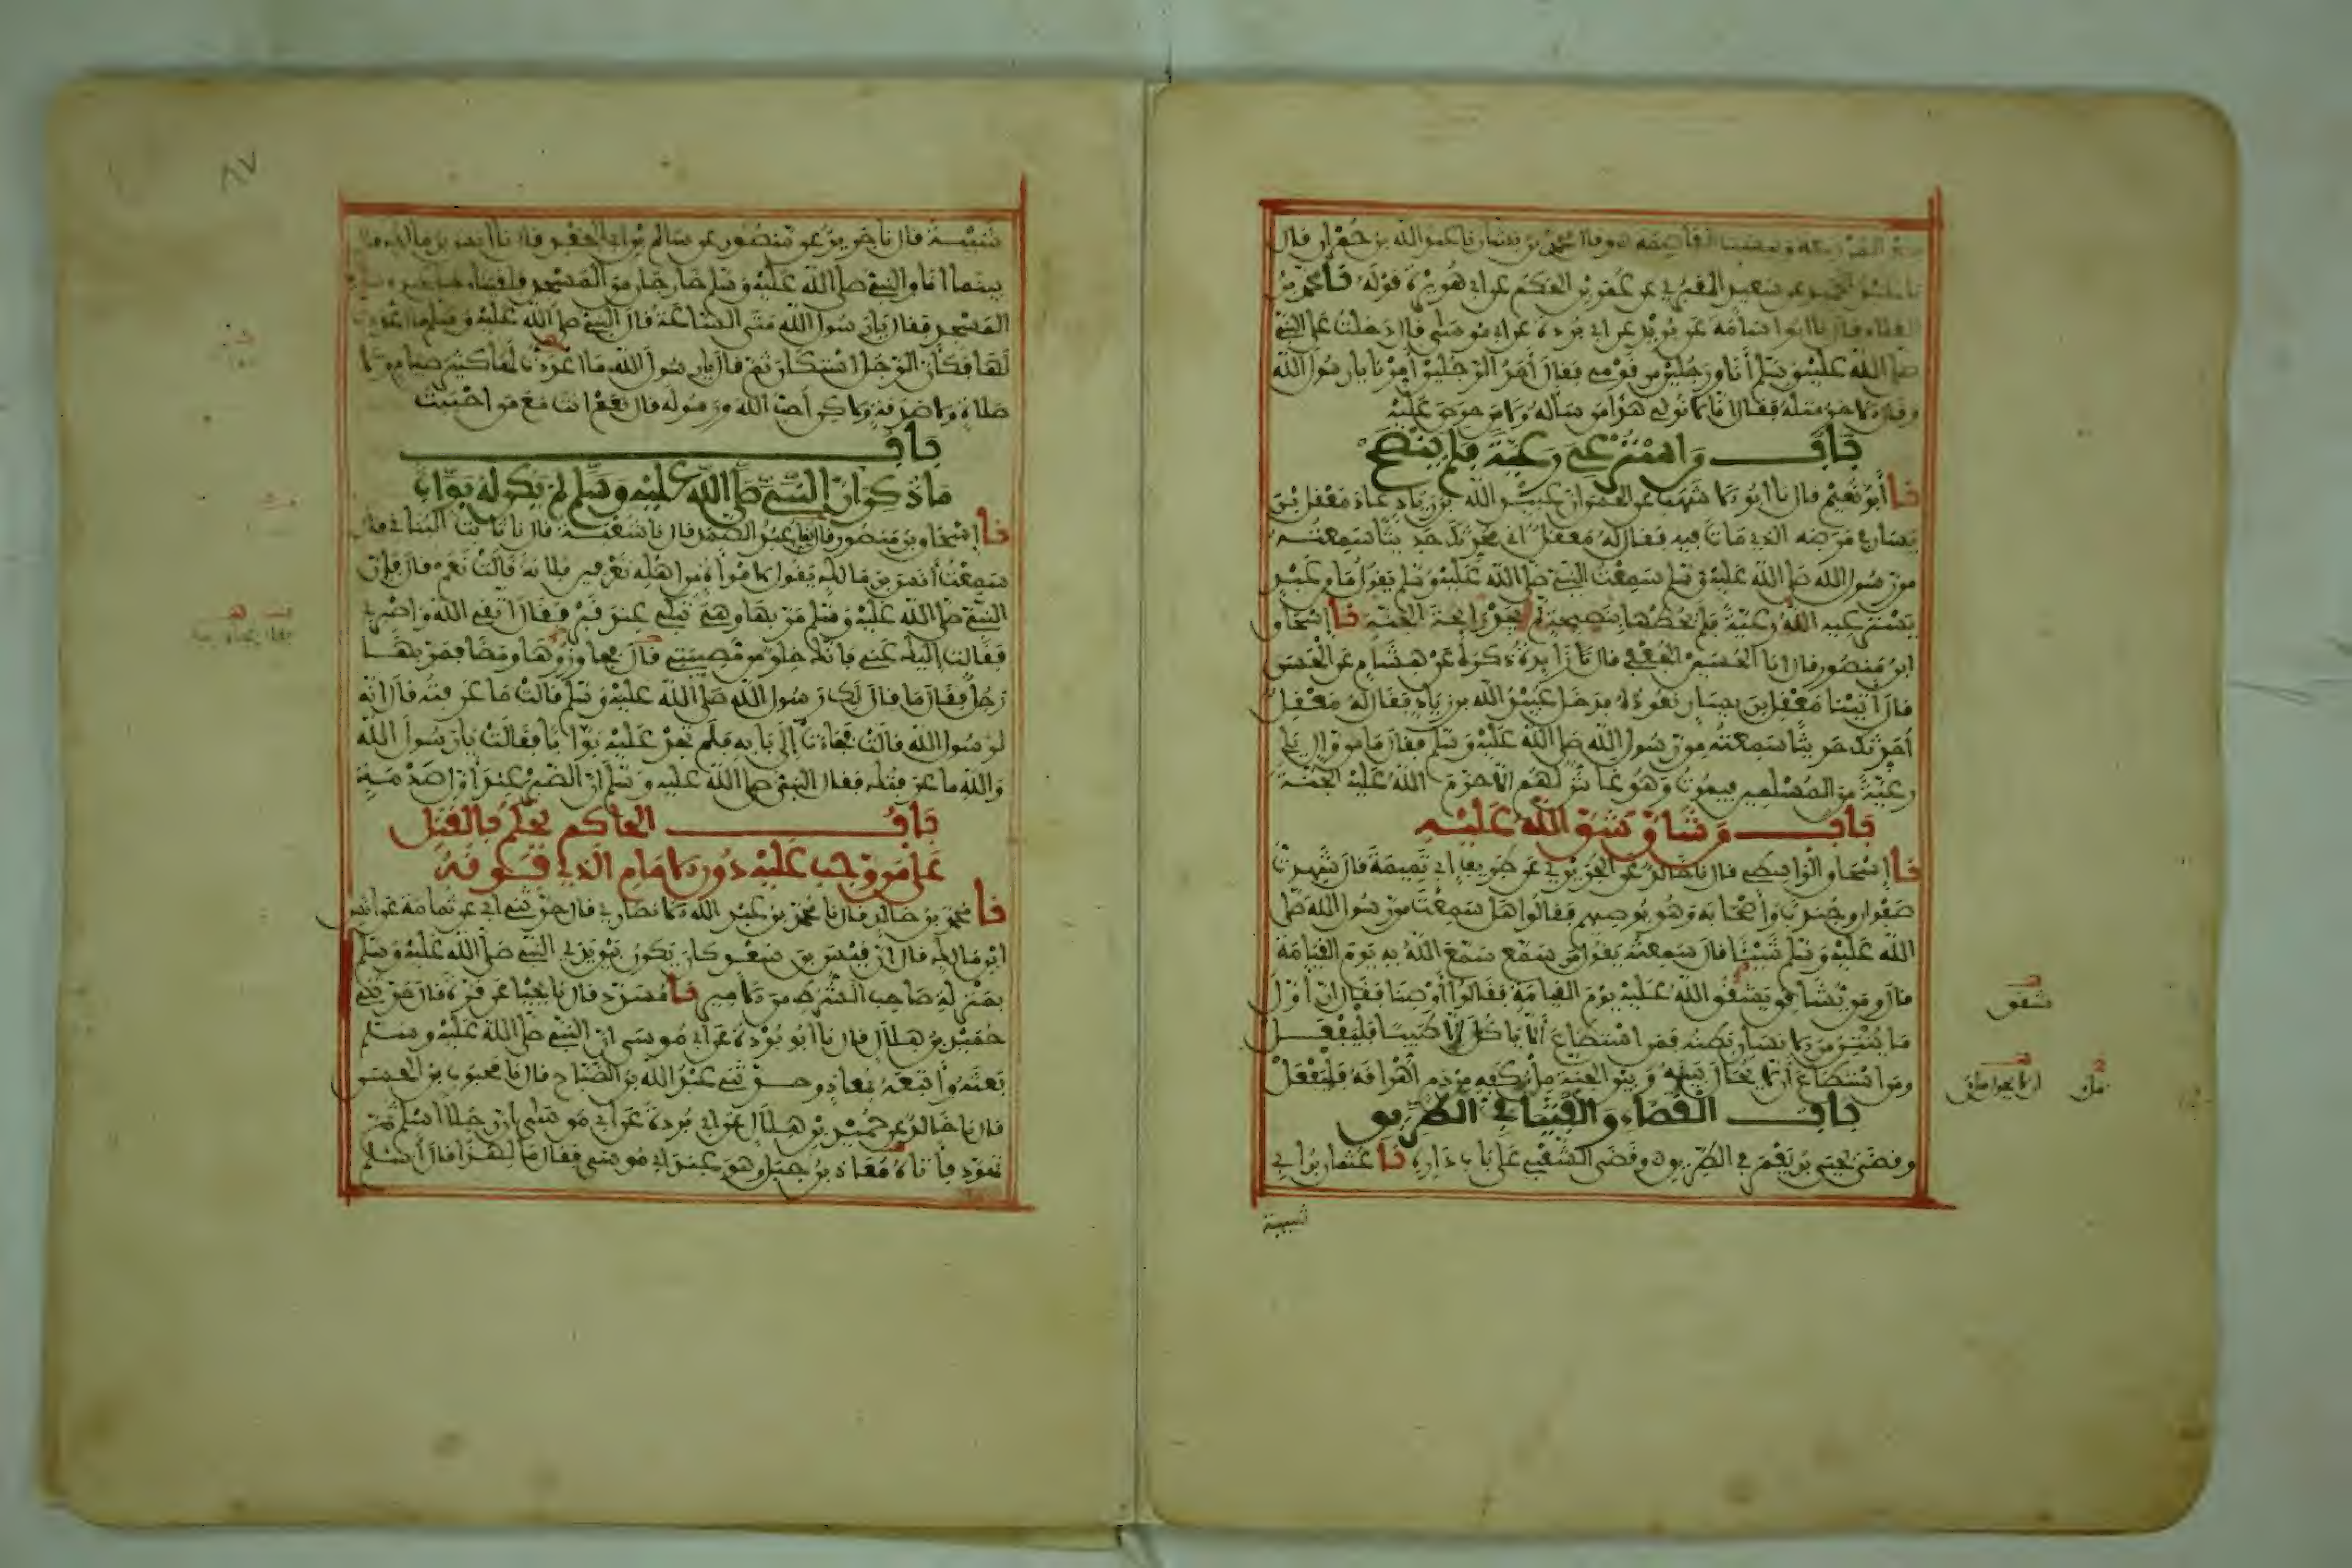 نا عبد الحميد عن سعيد المقبري عن عمر بن الحكم عن ابي هريرة قوله نا محمد بن
العلاء قال نا ابو اسامة عن بريد عن ابي بردة عن ابي موسى قال دخلت على النبي
صلى الله عليه وسلم أنا ورجلين من قومي فقال أحد الرجلين أمرنا يا رسول الله
وقال الاخر مثله فقال انا لا نولي هذا من سأله ولا من حرص عليه
باب من استرعي رعية فلم ينصح
نا أبو نعيم قال نا ابو الاشهب عن الحسن ان عبيد الله بن زياد عاد معقل بن
يسار في مرضه الذي مات فيه فقال له معقل اني محدثك حديثا سمعته
من رسول الله صلى الله عليه وسلم سمعت النبي صلى الله عليه وسلم يقول ما من عبد
يسترعيه الله رعية فلم يحطها بنصيحة لم يجد رايحة الجنة نا إسحاق
ابن منصور قال انا الحسين الجعفي قال نا زايدة ذكره عن هشام عن الحسن
قال أتينا معقل بن يسار نعوده فدخل عبيد الله بن زياد فقال له معقل
أحدثك حديثا سمعته من رسول الله صلى الله عليه وسلم فقال ما من وال يلي
رعية من المسلمين فيموت وهو غاش لهم الا حرم الله عليه الجنة
باب من شاق شق الله عليه
نا إسحاق الواسطي قال نا خالد عن الجريري عن طريف ابي تميمة قال شهدت
صفوان وجندبا وأصحابه وهو يوصيهم فقالوا هل سمعت من رسول الله صلى
الله عليه وسلم شيئا قال سمعته يقول من سمع سمع الله به يوم القيامة
قال ومن يشاقق يشقق الله عليه يوم القيامة فقالوا أوصنا فقال ان أول
ما ينتن من الانسان بطنه فمن استطاع ألا ياكل إلا طيبا فليفعل
ومن استطاع ألا يحال بينه وبين الجنة ملء كفه من دم أهراقه فليفعل
باب القضاء والفتيا في الطريق
وقضى يحيى بن يعمر في الطريق وقضى الشعبي على باب داره نا عثمان بن ابي
شيبة
شيبة قال نا جرير عن منصور عن سالم بن ابي الجعد قال نا أنس بن مالك قال
بينما انا والنبي صلى الله عليه وسلم خارجان من المسجد فلقينا رجل
المسجد فقال يا رسول الله متى الساعة قال النبي صلى الله عليه وسلم ما أعددت
لها فكأن الرجل استكان ثم قال يا رسول الله ما أعددت لها كثير صيام ولا
صلاة ولا صدقة ولاكن أحب الله ورسوله قال انت مع من احببت
باب
ما ذكر ان النبي صلى الله عليه وسلم لم يكن له بواب
نا إسحاق بن منصور قال انا عبد الصمد قال نا شعبة قال نا ثابت البناني قال
سمعت أنس بن مالك يقول لامرأة من اهله تعرفين فلانة قالت نعم قال فإن
النبي صلى الله عليه وسلم مر بها وهي تبكي عند قبر فقال اتقي الله واصبري
فقالت إليك عني فانك خلو من مصيبتي قال فجاوزها ومضا فمر بها
رجل فقال ما قال لك رسول الله صلى الله عليه وسلم قالت ما عرفته قال إنه
لرسول الله قالت فجاءت إلى بابه فلم تجد عليه بوابا فقالت يا رسول الله
والله ما عرفتك فقال النبي صلى الله عليه وسلم ان الصبر عند أول صدمة
باب الحاكم يحكم بالقتل
على من وجب عليه دون الامام الذي فوقه
نا محمد بن خالد قال نا محمد بن عبد الله الانصاري قال حدثني أبي عن ثمامة عن انس
ابن مالك قال إن قيس بن سعد كان يكون بين يدي النبي صلى الله عليه وسلم
بمنزلة صاحب الشرط من الامير نا مسدد قال نا يحيا عن قرة قال حدثني
حميد بن هلال قال نا أبو بردة عن ابي موسى ان النبي صلى الله عليه وسلم
بعثه وأتبعه بمعاذ وحدثني عبد الله بن الصباح قال نا محبوب بن الحسن
قال نا خالد عن حميد بن هلال عن ابي بردة عن ابي موسى ان رجلا اسلم ثم
تهود فأتاه معاذ بن جبل وهو عند ابي موسى فقال ما لهذا قال أسلم